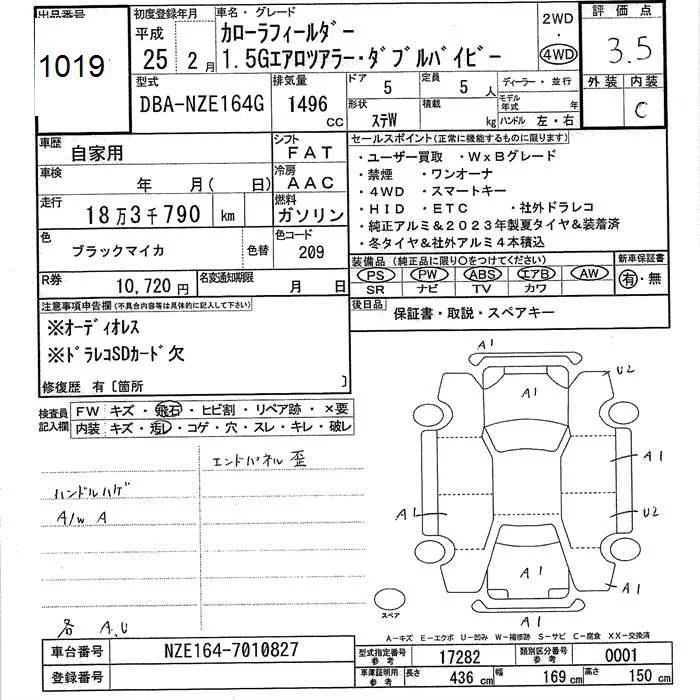 出品番号
1019
初度登録年月
平成
25 2月
車名・グレード
カローラフィールダー
1.5Gエアロツアラー・ダブルバイビー
2WD
・
4WD
評価点
3.5
外装 内装
C
型式
DBA-NZE164G
排気量
1496
CC
ドア
5
定員
5人
形状
ステW
積載
kg
ディーラー・並行
モデル年式 年
ハンドル 左・右
車歴
自家用
シフト
FAT
車検
年 月( 日)
冷房
AAC
走行
18万3千790 km
燃料
ガソリン
色
ブラックマイカ
色替
色コード
209
R券
10,720円
名変通知期限
月 日
セールスポイント(正常に機能するものに限ります)
・ユーザー買取 ・WxBグレード
・禁煙 ・ワンオーナ
・4WD ・スマートキー
・HID ・ETC ・社外ドラレコ
・純正アルミ&2023年製夏タイヤ&装着済
・冬タイヤ&社外アルミ4本積込
装備品(純正品に限り○をつけてください)
PS PW ABS エアB AW
SR ナビ TV カワ
新車保証書
有・無
後日品
保証書・取説・スペアキー
注意事項申告欄(不具合内容等は具体的に記入して下さい)
※オーディオレス
※ドラレコSDカード欠
修復歴 有〔箇所 〕
検査員記入欄
FW キズ・飛石・ヒビ割・リペア跡・×要
内装 キズ・汚レ・コゲ・穴・スレ・キレ・破レ
エンドパネル 歪
ハンドルハゲ
A/W A
各 A.U
A1
A1
U2
A1
A1
U2
A1
A1
A1
スペア
A-キズ E-エクボ U-凹み W-補修跡 S-サビ C-腐食 XX-交換済
車台番号
NZE164-7010827
登録番号
型式指定番号
参考
17282
類別区分番号
参考
0001
車庫証明用
参考
長さ
436 cm
幅
169 cm
高さ
150 cm